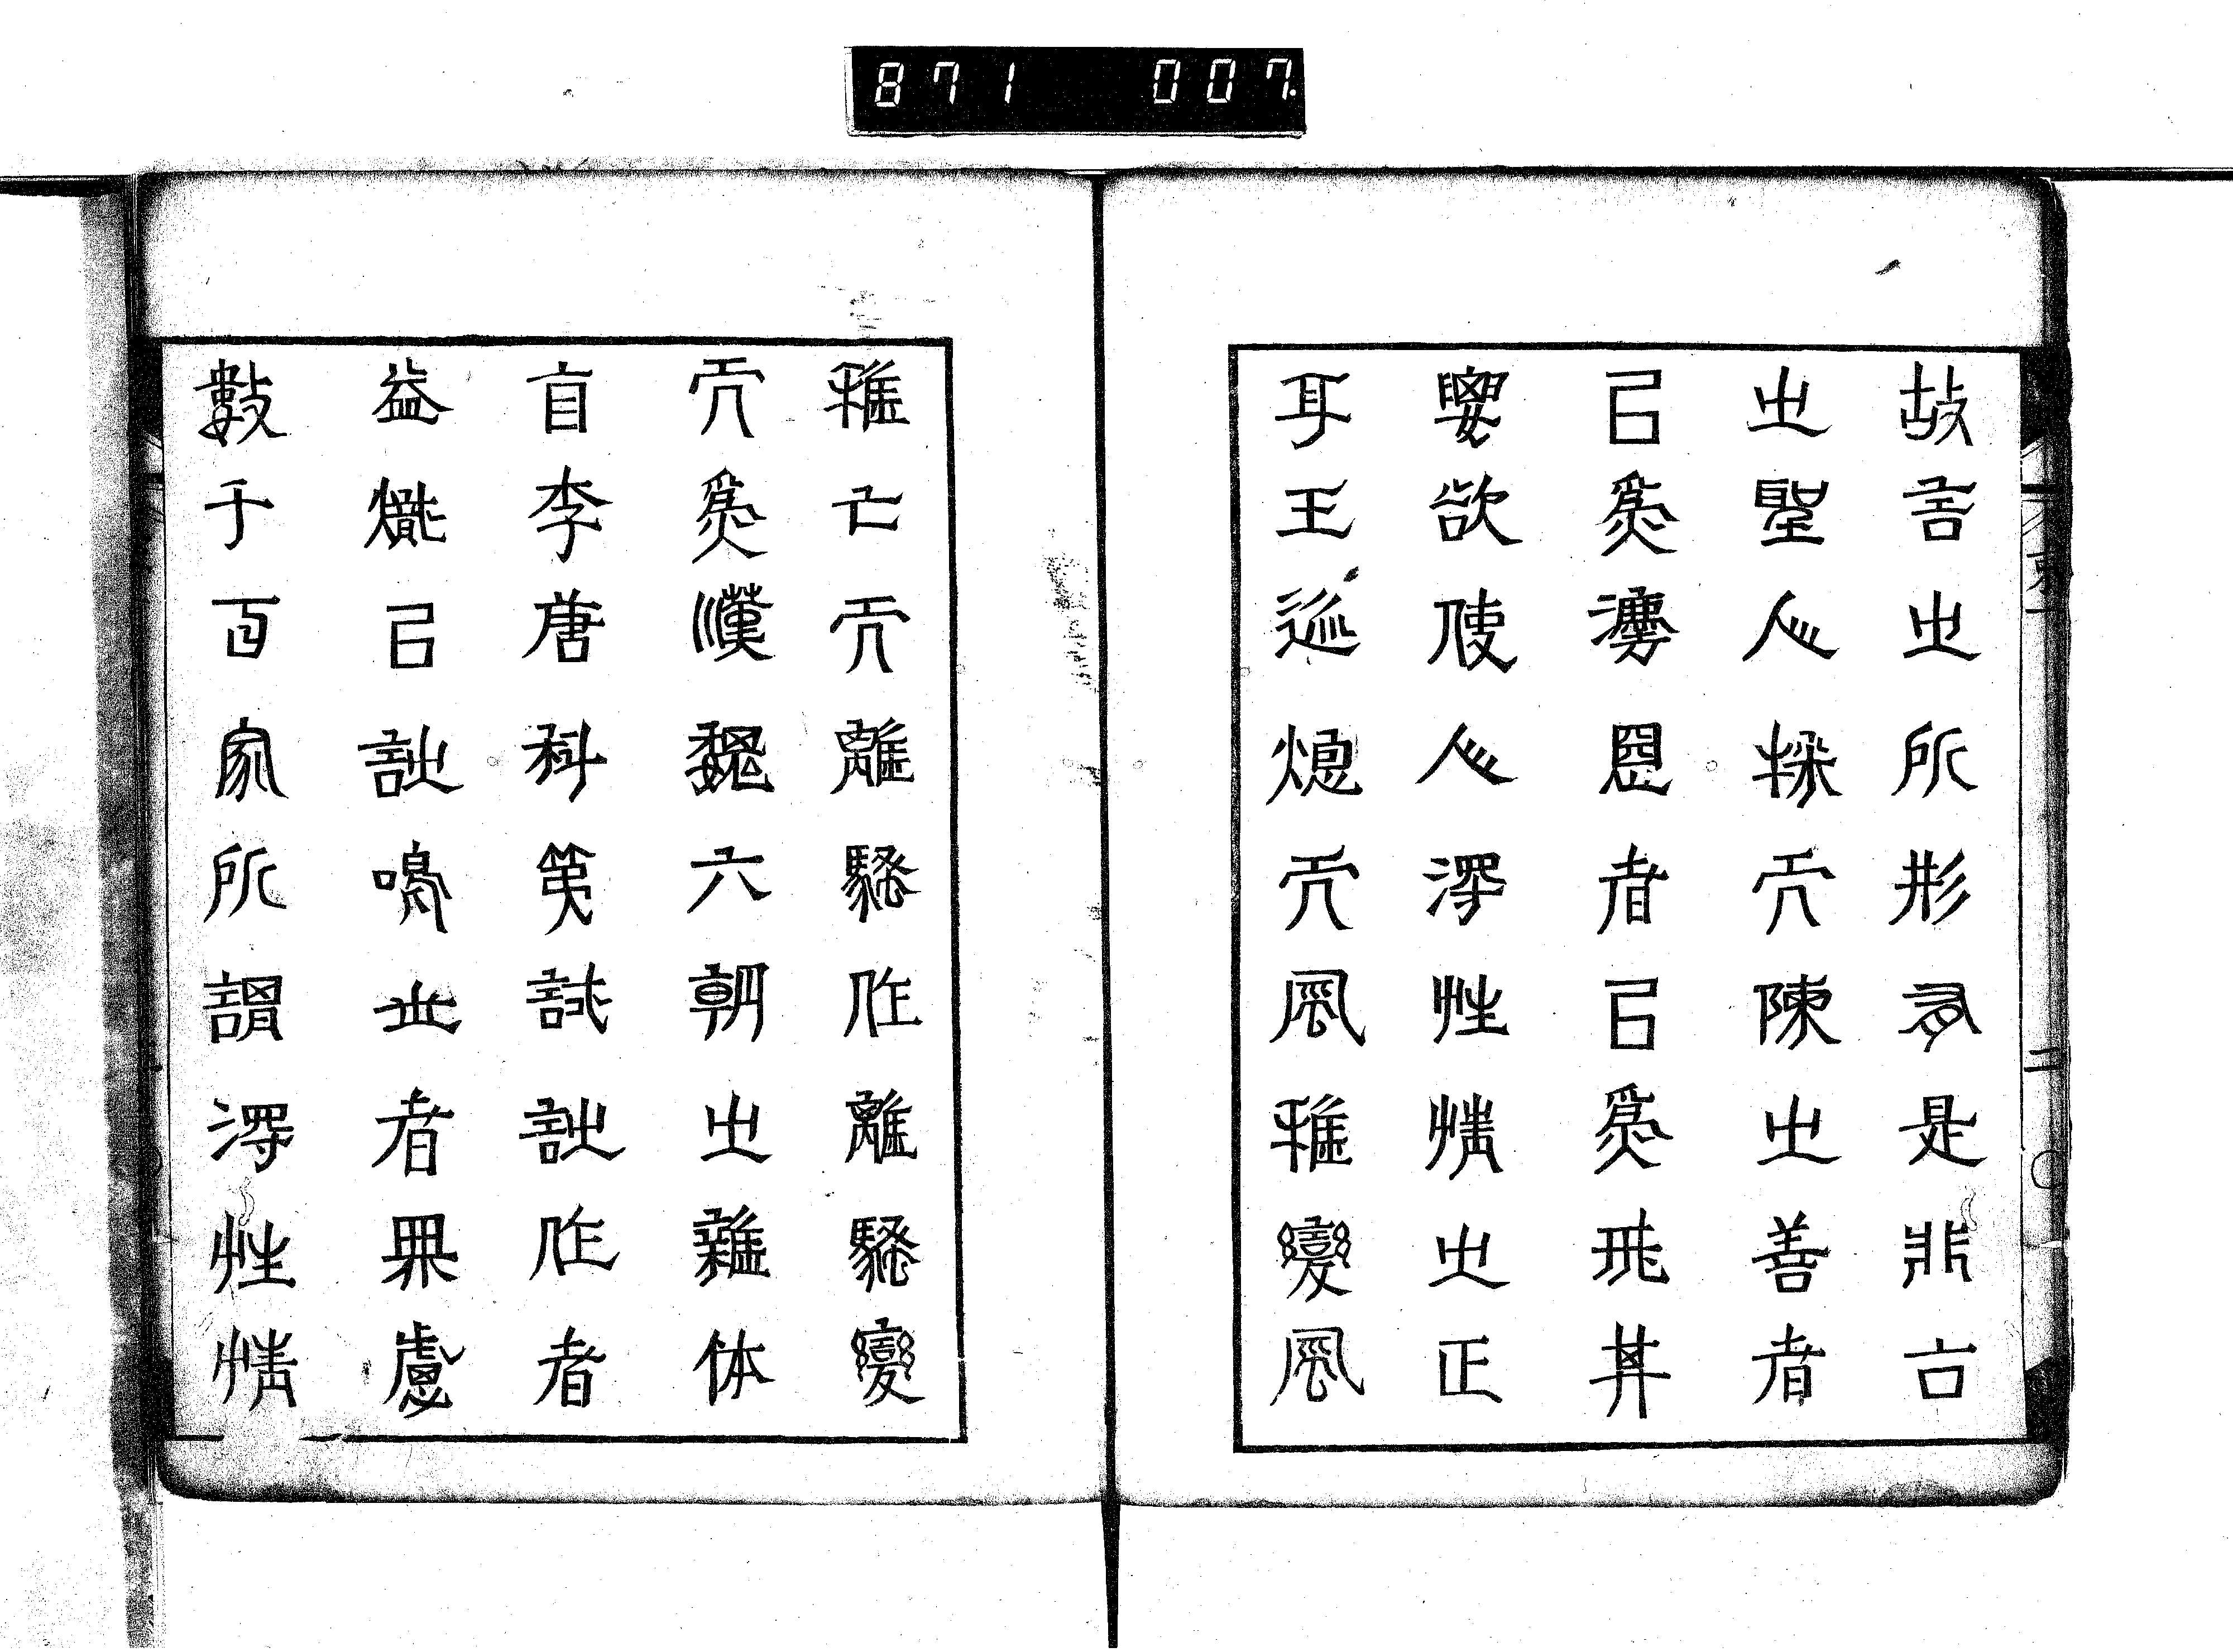 871 007.
故言之所形有是非古
之聖人採而陳之善者
㠯為灋惡者㠯為戒其
要欲使人得性情之正
耳王迹熄而風雅變風
雅亡而離騷作離騷變
而為漢魏六朝之雜体
首李唐科第試詩作者
益熾㠯詩鳴世者無慮
數千百家所謂得性情
二